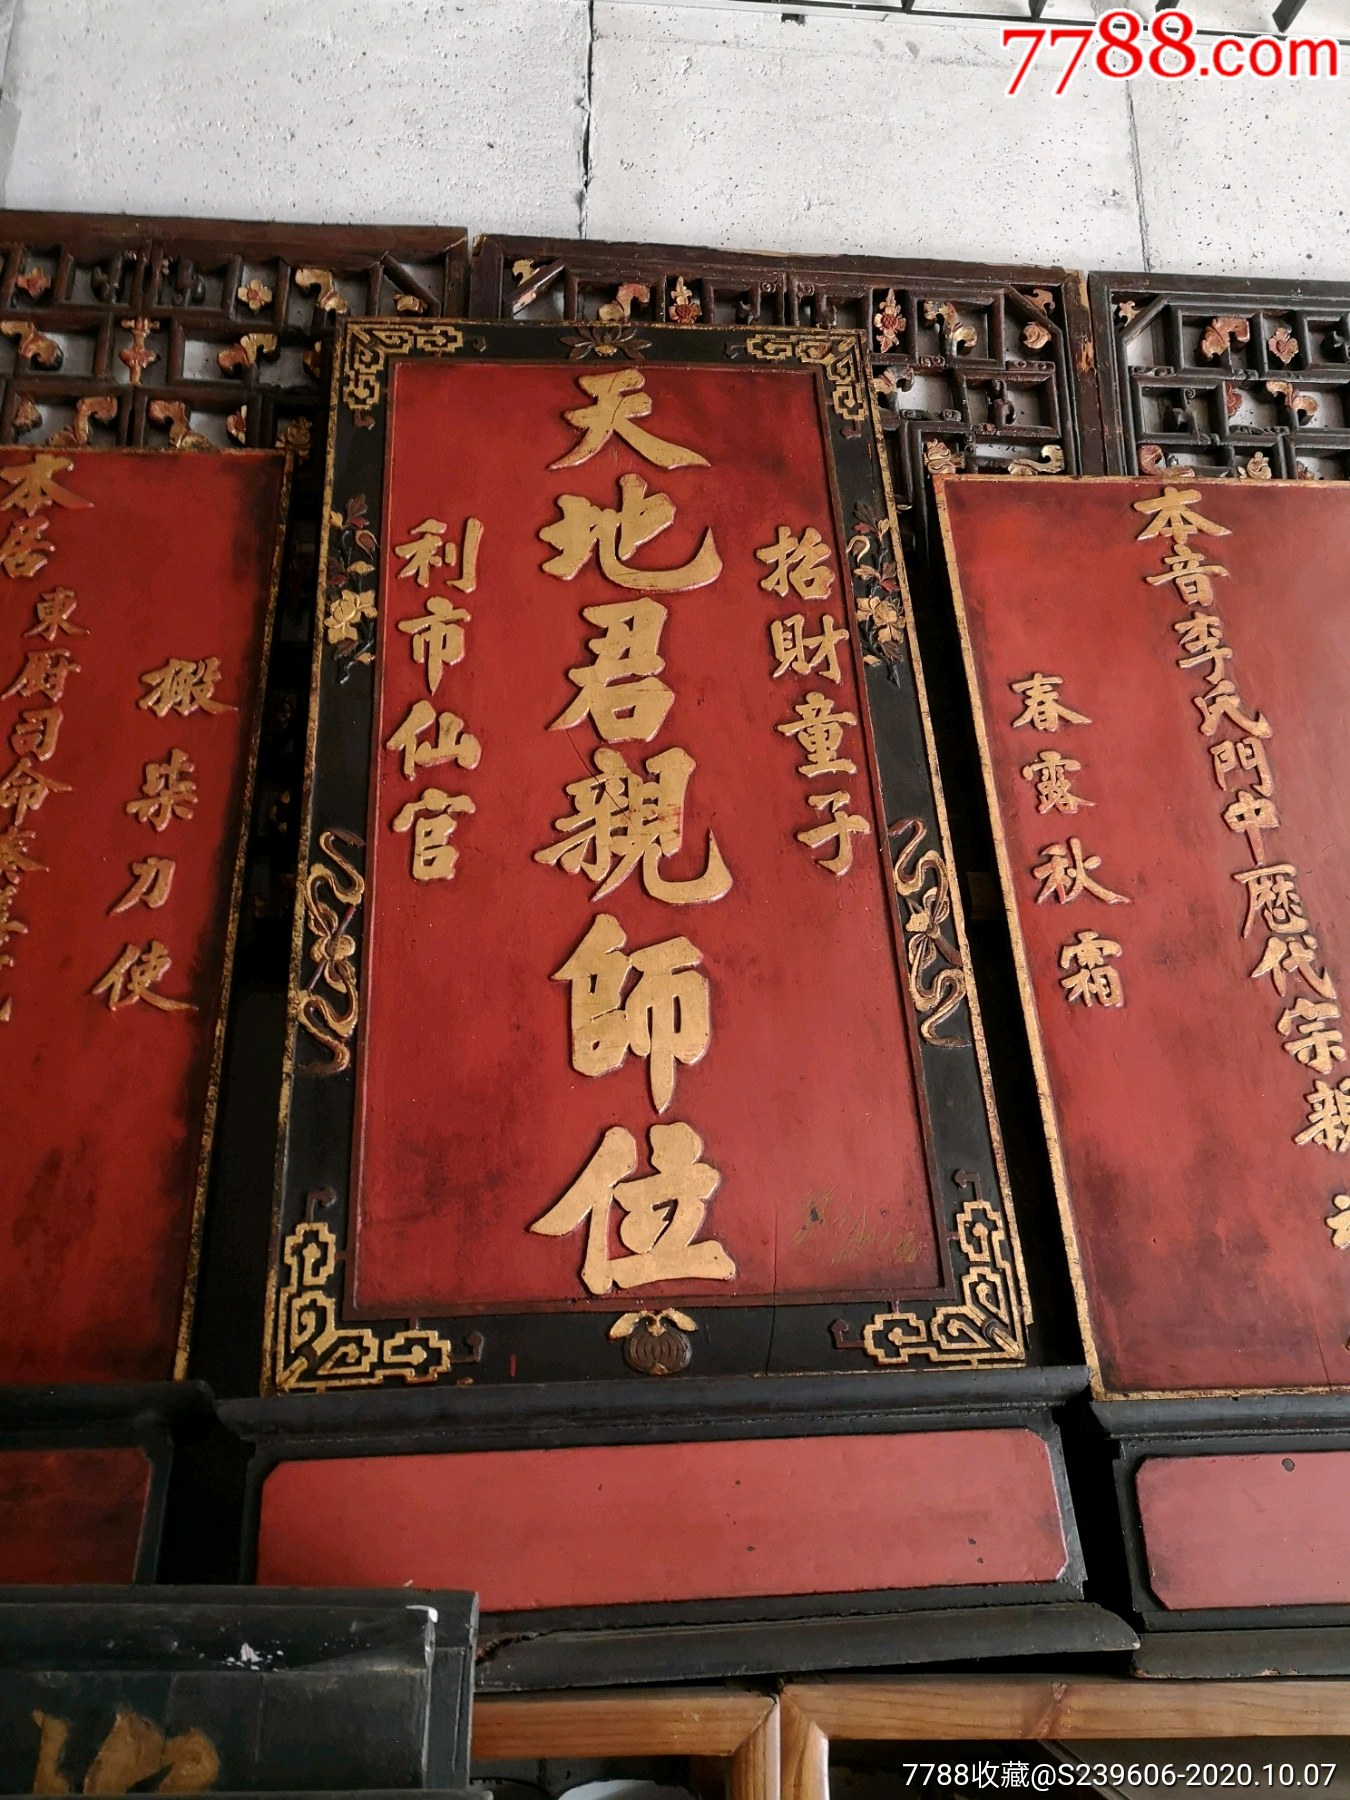 7788.com
天地君親師位
招財童子
利市仙官
本音李氏門中歷代宗親
春露秋霜
本居東厨司命
搬柴力使
7788收藏@S239606-2020.10.07